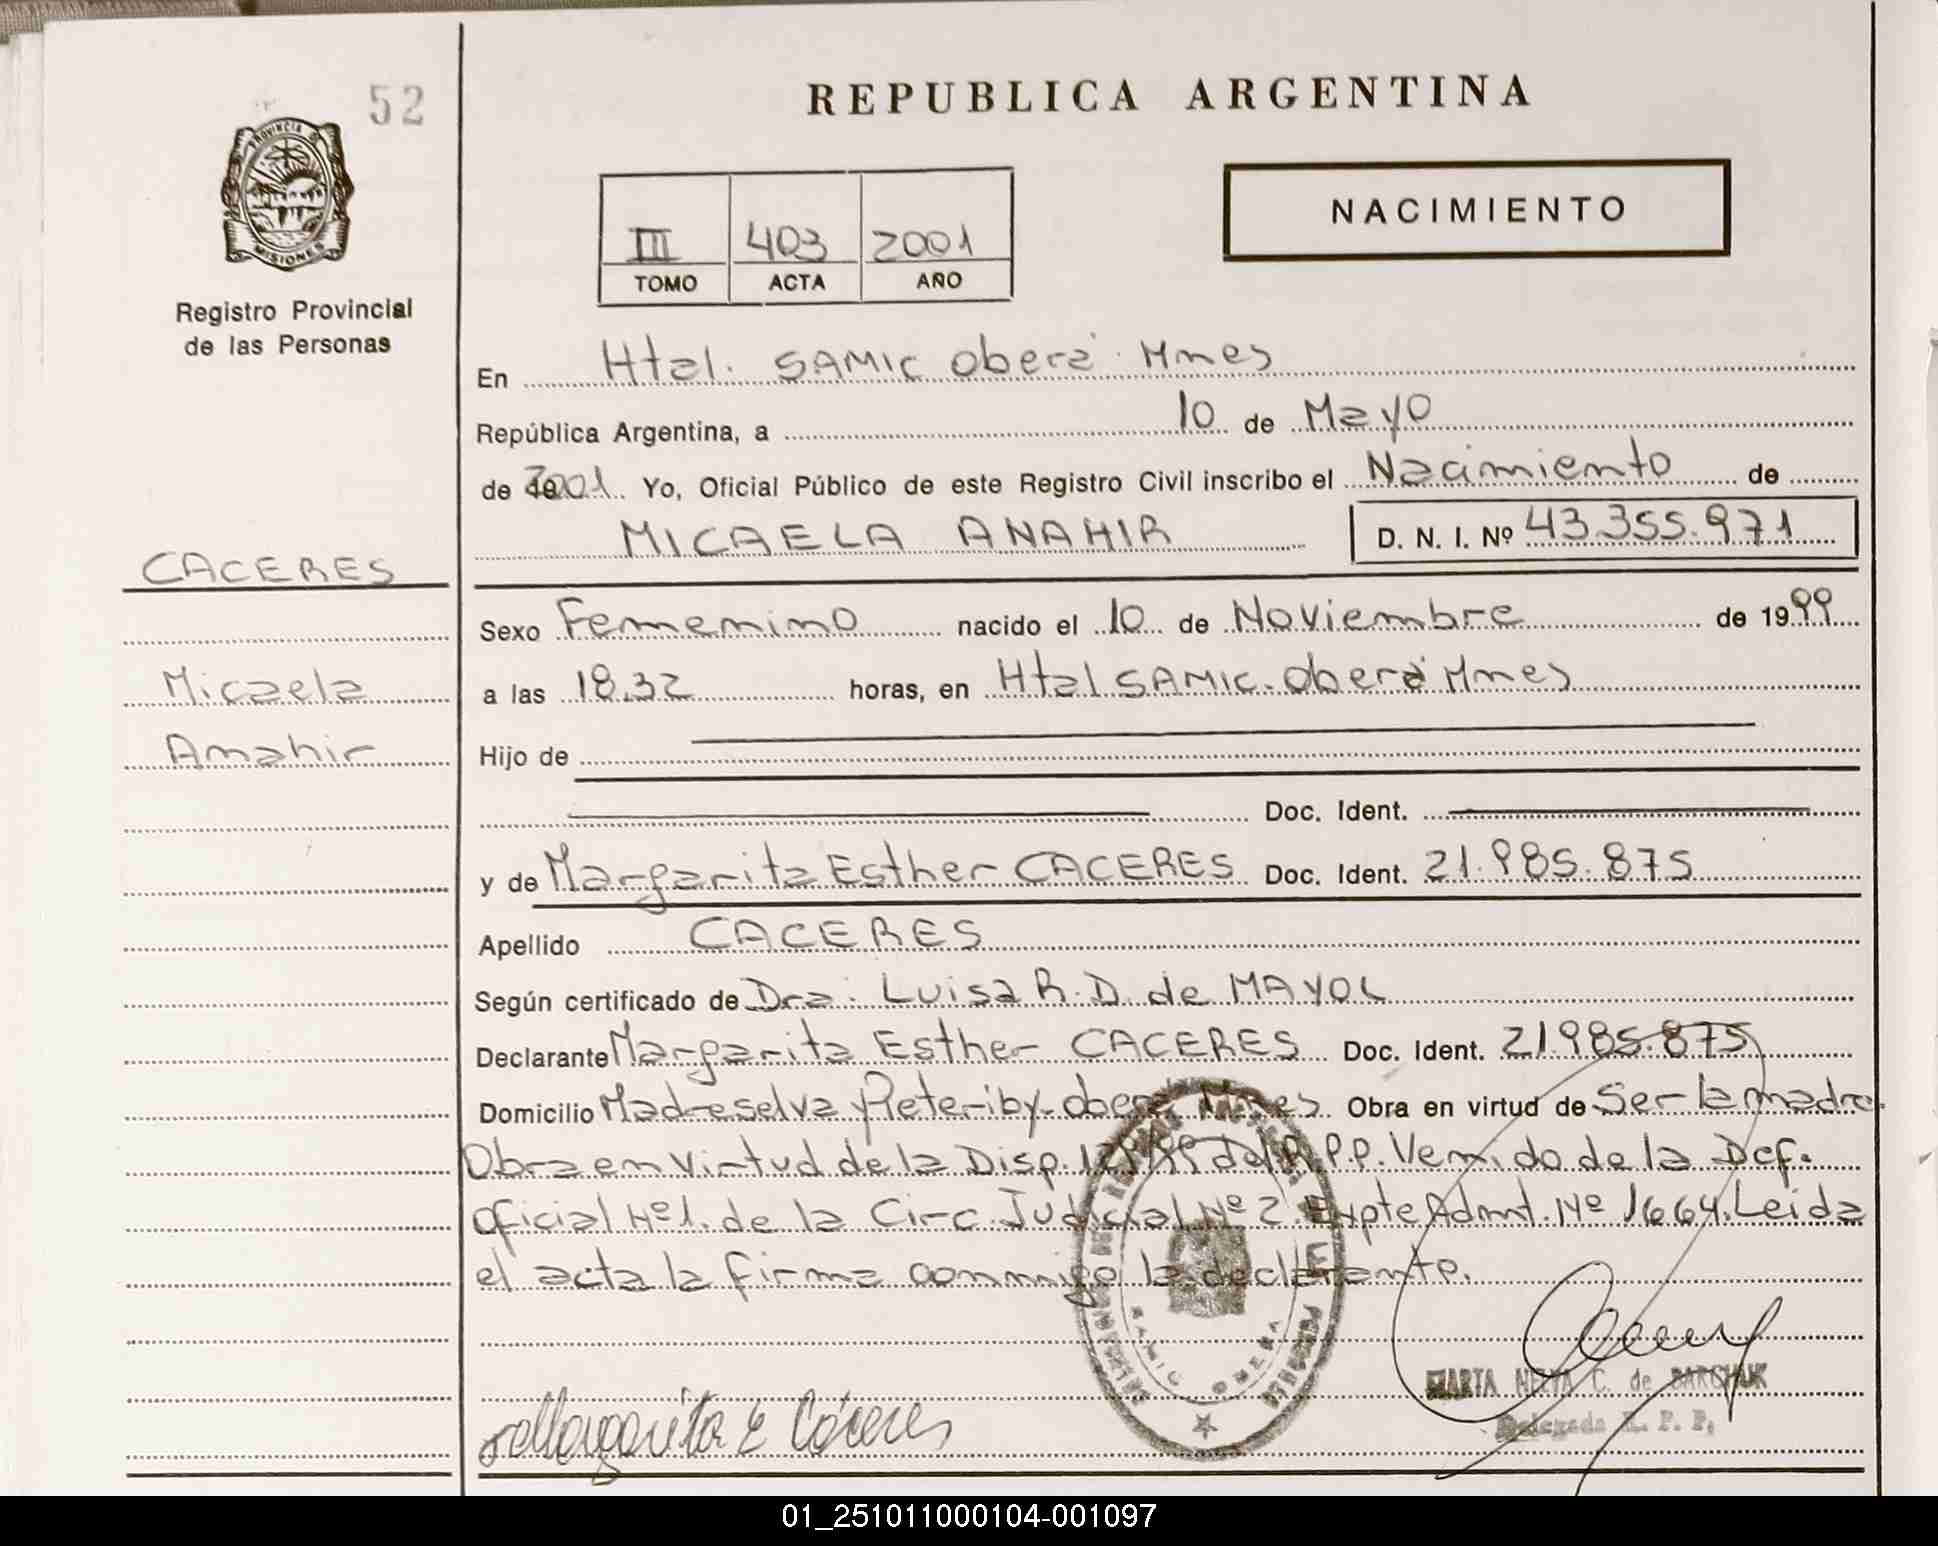 52
REPUBLICA ARGENTINA
PROVINCIA D
MISIONES
Registro Provincial
de las Personas
III 403 2001
TOMO ACTA AÑO
NACIMIENTO
En Htal. SAMIC Oberá Mnes
República Argentina, a 10 de Mayo
de 2001. Yo, Oficial Público de este Registro Civil inscribo el Nacimiento de
MICAELA ANAHIR D. N. I. Nº 43.355.971
CACERES
Micaela
Anahir
Sexo Femenino nacido el 10 de Noviembre de 1999
a las 18.32 horas, en Htal SAMIC. Oberá Mnes
Hijo de
Doc. Ident.
y de Margarita Esther CACERES Doc. Ident. 21.985.875
Apellido CACERES
Según certificado de Dra: Luisa R. D. de MAYOL
Declarante Margarita Esther CACERES Doc. Ident. 21.985.875
Domicilio Madreselva y Peteriby. Oberá Mnes Obra en virtud de Ser la madre.
Obra en virtud de la Disp. del R.P.P. Venido de la Def.
Oficial Nº1. de la Circ. Judicial Nº 2. Expte Admt. Nº 1664. Leida
el acta la firma conmigo la declarante.
SAMIC OBERA
Margarita E Cáceres
MARTA C. de BARCHUK
Delegada R. P. P.
01_251011000104-001097